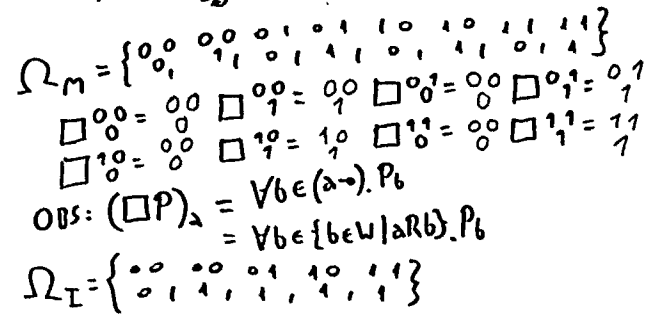 Ω_M = { 0 0 / 0 , 0 0 / 1 , 0 1 / 0 , 0 1 / 1 , 1 0 / 0 , 1 0 / 1 , 1 1 / 0 , 1 1 / 1 }
□ 0 0 / 0 = 0 0 / 0 □ 0 0 / 1 = 0 0 / 1 □ 0 1 / 0 = 0 0 / 0 □ 0 1 / 1 = 0 1 / 1
□ 1 0 / 0 = 0 0 / 0 □ 1 0 / 1 = 1 0 / 1 □ 1 1 / 0 = 0 0 / 0 □ 1 1 / 1 = 1 1 / 1
OBS: (□P)ₐ = ∀b∈(a→).P_b
= ∀b∈{b∈W|aRb}.P_b
Ω_I = { 0 0 / 0 , 0 0 / 1 , 0 1 / 1 , 1 0 / 1 , 1 1 / 1 }